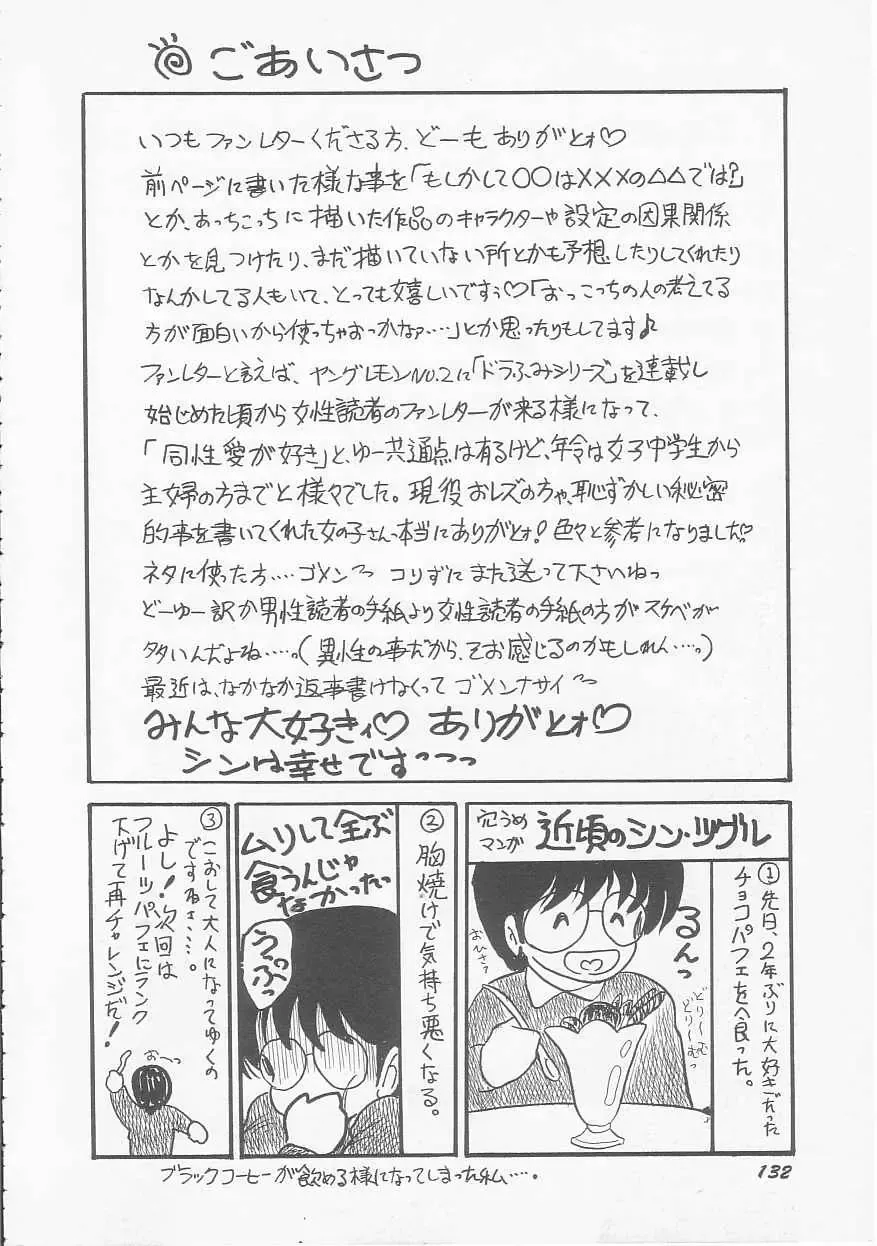 ごあいさつ
いつもファンレターくださる方、どーもありがとォ♡
前ページに書いた様な事を「もしかして〇〇は×××の△△では?」
とか、あっちこっちに描いた作品のキャラクターや設定の因果関係
とかを見つけたり、まだ描いていない所とかも予想したりしてくれたり
なんかしてる人もいて、とっても嬉しいですぅ♡「おっこっちの人の考えてる
方が面白いから使っちゃおっかなァ……」とか思ったりもしてます♪
ファンレターと言えば、ヤングレモンNO.2に「ドラふみシリーズ」を連載し
始じめた頃から女性読者のファンレターが来る様になって、
「同性愛が好き」と、ゆー共通点は有るけど、年令は女子中学生から
主婦の方までと様々でした。現役おレズの方や、恥ずかしい秘密
的事を書いてくれた女の子さんっ本当にありがとォ!色々と参考になりましたっ♡
ネタに使った方‥‥ゴメン〜 コリずにまた送って下さいねっ
どーゆー訳か男性読者の手紙より女性読者の手紙の方がスケベが
多いんだよね……。(異性の事だから、そお感じるのかもしれん…。)
最近は、なかなか返事書けなくって ゴメンナサイ〜
みんな大好きィ♡ ありがとォ♡
シンは幸せですっっっ
穴うめマンガ 近頃のシン・ツグル
①先日、2年ぶりに大好きだった
チョコパフェを食った。
るんっ
おひさァ
どり〜む
どり〜むっ
②胸焼けで気持ち悪くなる。
ムリして全ぶ
食うんじゃ
なかったっ
うっぷっ
③こおして大人になってゆくの
ですねェ…。
よし!次回は
フルーツパフェにランク
下げて再チャレンジだ!
おーっ
ブラックコーヒーが飲める様になってしまった私……。
132